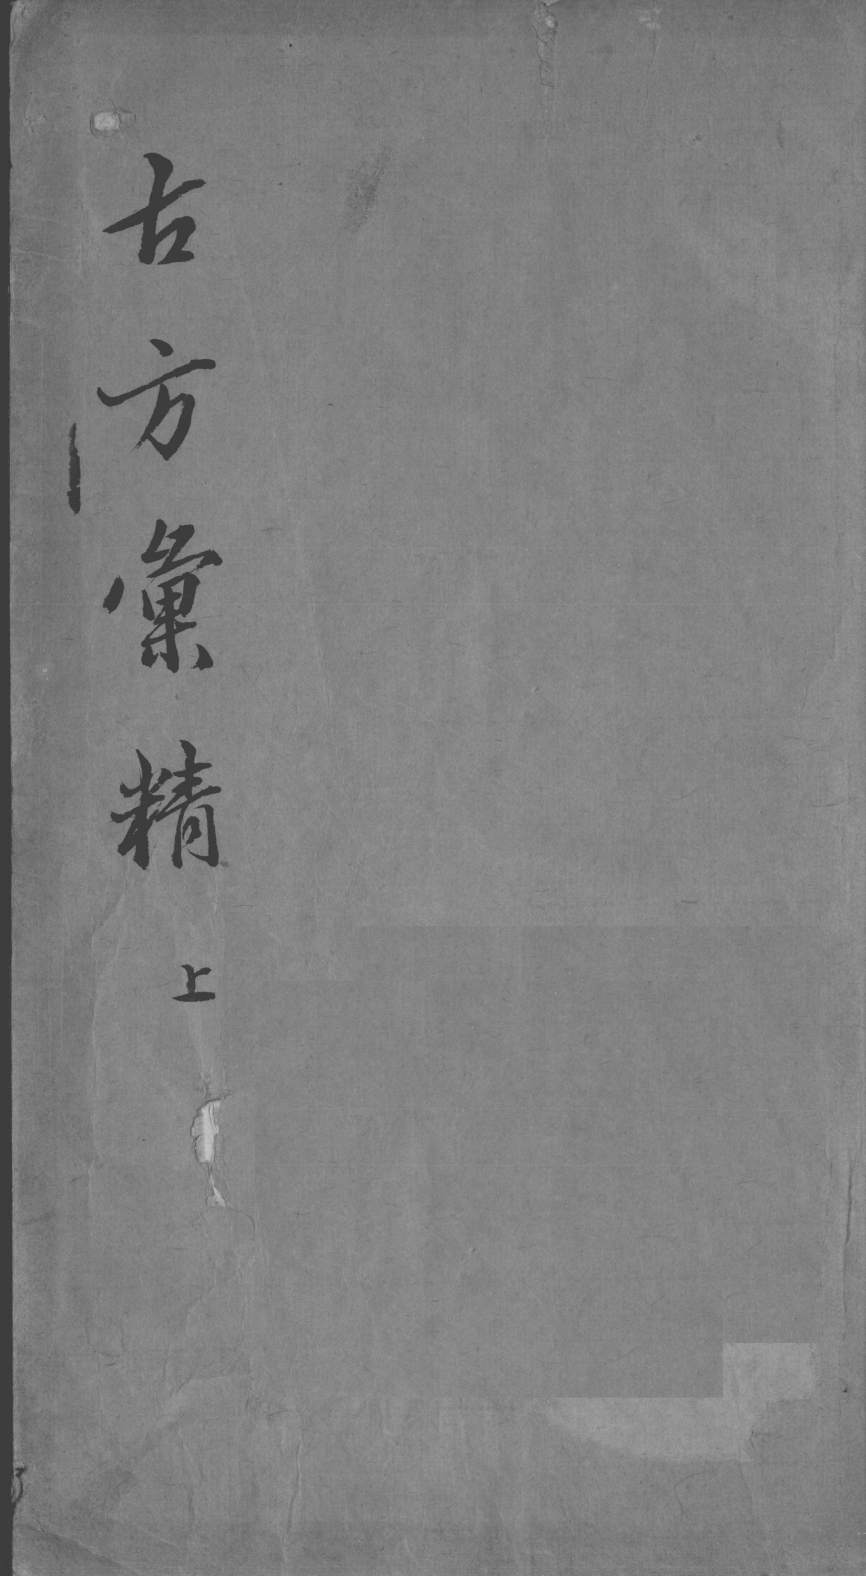 古方彙精 上